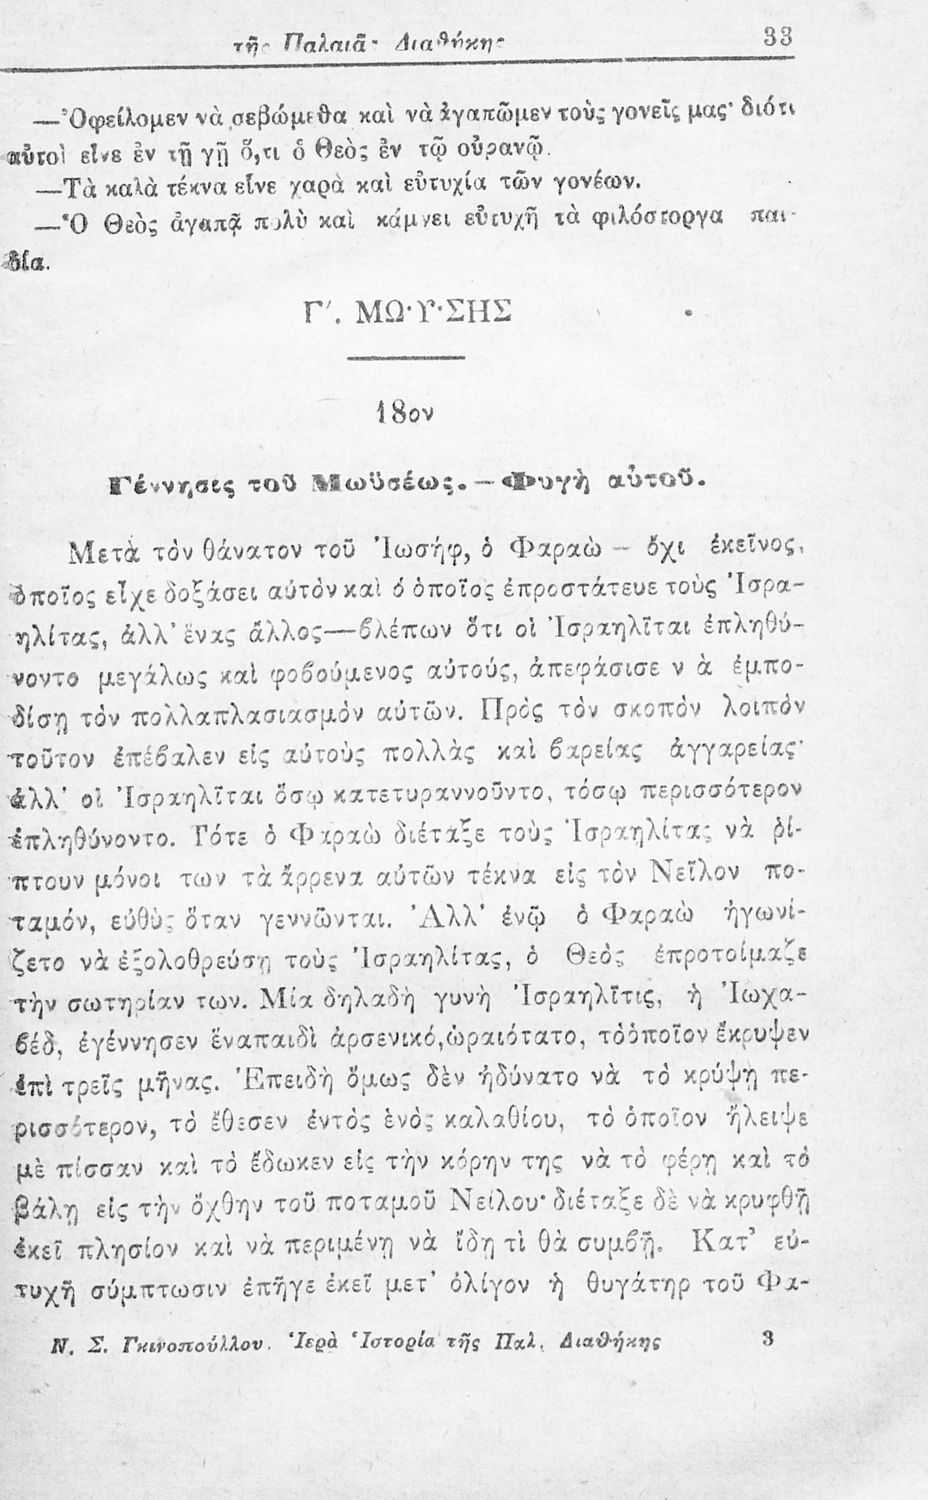 τῆς Παλαιᾶς Διαθήκης 33
—Ὀφείλομεν νὰ σεβώμεθα καὶ νὰ ἀγαπῶμεν τοὺς γονεῖς μας· διότι
αὐτοὶ εἶνε ἐν τῇ γῇ ὅ,τι ὁ Θεὸς ἐν τῷ οὐρανῷ.
—Τὰ καλὰ τέκνα εἶνε χαρὰ καὶ εὐτυχία τῶν γονέων.
—Ὁ Θεὸς ἀγαπᾷ πολὺ καὶ κάμνει εὐτυχῆ τὰ φιλόστοργα παι-
δία.
Γ΄. ΜΩ·Υ·ΣΗΣ
18ον
Γέννησις τοῦ Μωϋσέως.—Φυγὴ αὐτοῦ.
Μετὰ τὸν θάνατον τοῦ Ἰωσήφ, ὁ Φαραὼ — ὄχι ἐκεῖνος,
ὁποῖος εἶχε δοξάσει αὐτὸν καὶ ὁ ὁποῖος ἐπροστάτευε τοὺς Ἰσρα-
ηλίτας, ἀλλ' ἕνας ἄλλος—βλέπων ὅτι οἱ Ἰσραηλῖται ἐπληθύ-
νοντο μεγάλως καὶ φοβούμενος αὐτούς, ἀπεφάσισε ν ὰ ἐμπο-
δίσῃ τὸν πολλαπλασιασμὸν αὐτῶν. Πρὸς τὸν σκοπὸν λοιπὸν
τοῦτον ἐπέβαλεν εἰς αὐτοὺς πολλὰς καὶ βαρείας ἀγγαρείας·
ἀλλ' οἱ Ἰσραηλῖται ὅσῳ κατετυραννοῦντο, τόσῳ περισσότερον
ἐπληθύνοντο. Τότε ὁ Φαραὼ διέταξε τοὺς Ἰσραηλίτας νὰ ῥί-
πτουν μόνοι των τὰ ἄρρενα αὐτῶν τέκνα εἰς τὸν Νεῖλον πο-
ταμόν, εὐθὺς ὅταν γεννῶνται. Ἀλλ' ἐνῷ ὁ Φαραὼ ἠγωνί-
ζετο νὰ ἐξολοθρεύσῃ τοὺς Ἰσραηλίτας, ὁ Θεὸς ἐπροτοίμαζε
τὴν σωτηρίαν των. Μία δηλαδὴ γυνὴ Ἰσραηλῖτις, ἡ Ἰωχα-
βέδ, ἐγέννησεν ἕναπαιδὶ ἀρσενικό,ὡραιότατο, τὸὁποῖον ἔκρυψεν
ἐπὶ τρεῖς μῆνας. Ἐπειδὴ ὅμως δὲν ἠδύνατο νὰ τὸ κρύψῃ πε-
ρισσότερον, τὸ ἔθεσεν ἐντὸς ἑνὸς καλαθίου, τὸ ὁποῖον ἤλειψε
μὲ πίσσαν καὶ τὸ ἔδωκεν εἰς τὴν κόρην της νὰ τὸ φέρῃ καὶ τὸ
βάλῃ εἰς τὴν ὄχθην τοῦ ποταμοῦ Νείλου· διέταξε δὲ νὰ κρυφθῇ
ἐκεῖ πλησίον καὶ νὰ περιμένῃ νὰ ἴδῃ τὶ θὰ συμβῇ. Κατ' εὐ-
τυχῆ σύμπτωσιν ἐπῆγε ἐκεῖ μετ' ὀλίγον ἡ θυγάτηρ τοῦ Φα-
Ν. Σ. Γκινοπούλλου. Ἱερὰ Ἱστορία τῆς Παλ. Διαθήκης 3